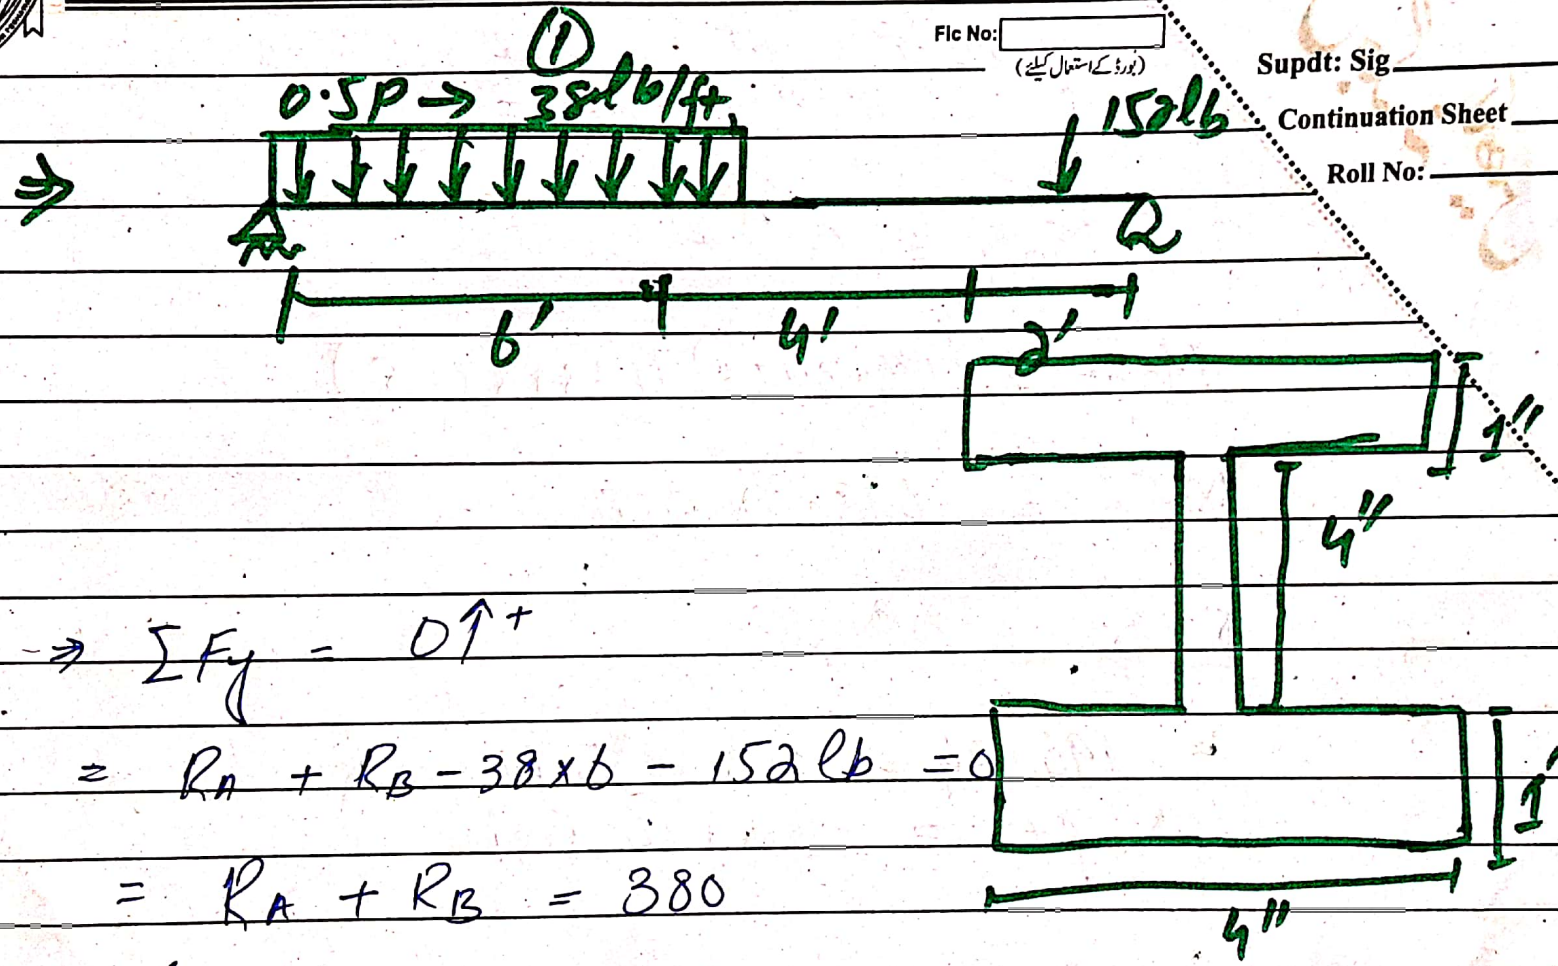 ①
Fic No:
(بورڈ کے استعمال کیلئے)
Supdt: Sig
Continuation Sheet
Roll No:
0.5P → 38 lb/ft,
152lb
⇒
6'
4'
2'
1"
4"
⇒ ΣFy = 0↑+
= RA + RB - 38x6 - 152lb = 0
1'
= RA + RB = 380
4"